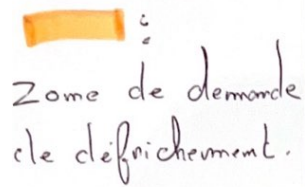 :
Zone de demande
de défrichement.